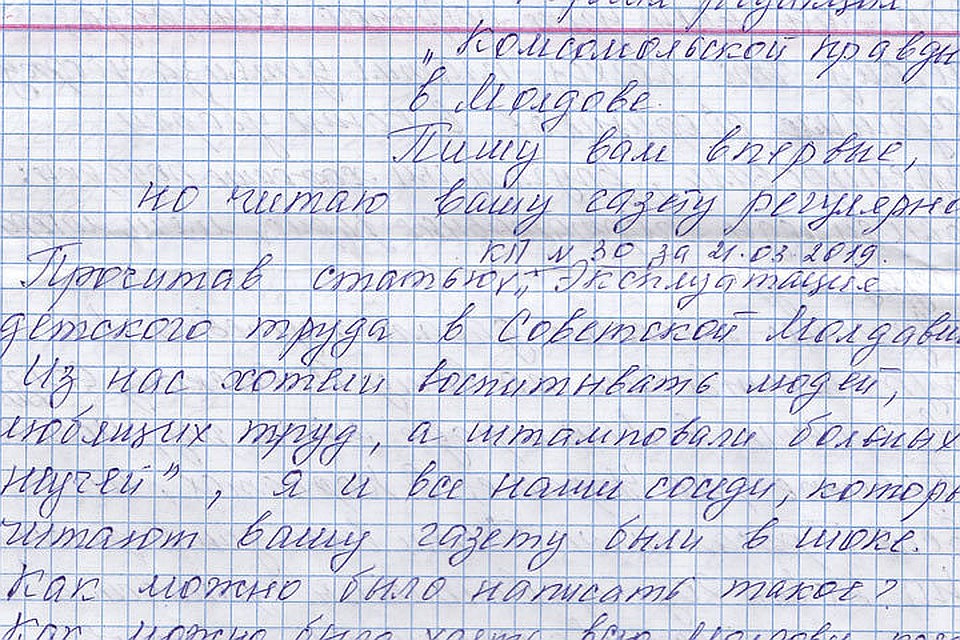 „Комсомольской правды
в Молдове.
Пишу вам впервые,
но читаю вашу газету регулярно
КП № 30 за 21.03.2019.
Прочитав статью „Эксплуатация
детского труда в Советской Молдавии
Из нас хотели воспитывать людей,
любящих труд, а штамповали больных
неучей", я и все наши соседи, которы
читают вашу газету были в шоке.
Как можно было написать такое?
Как можно было хаять всю